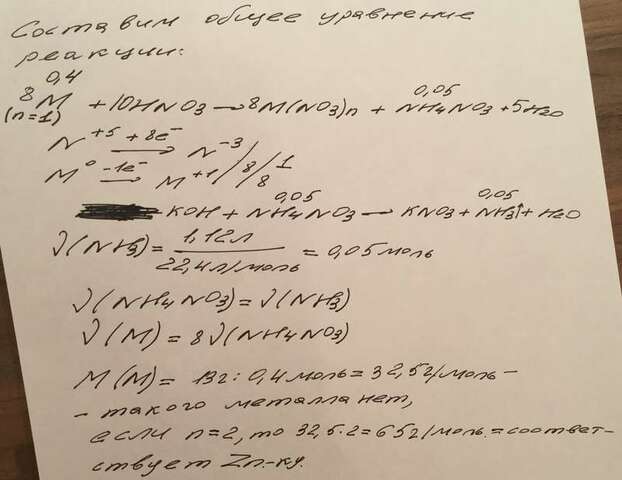 Составим общее уравнение
реакции:
0,4 0,05
8M + 10HNO3 → 8M(NO3)n + NH4NO3 + 5H2O
(n=1)
N+5 +8e- → N-3 / 8 / 1
M0 -1e- → M+1 / 8
0,05 0,05
KOH + NH4NO3 → KNO3 + NH3↑ + H2O
ν(NH3) = 1,12л / 22,4л/моль = 0,05моль
ν(NH4NO3) = ν(NH3)
ν(M) = 8ν(NH4NO3)
M(M) = 13г : 0,4моль = 32,5г/моль -
- такого металла нет,
если n=2, то 32,5·2=65г/моль = соответ-
ствует Zn-ку.